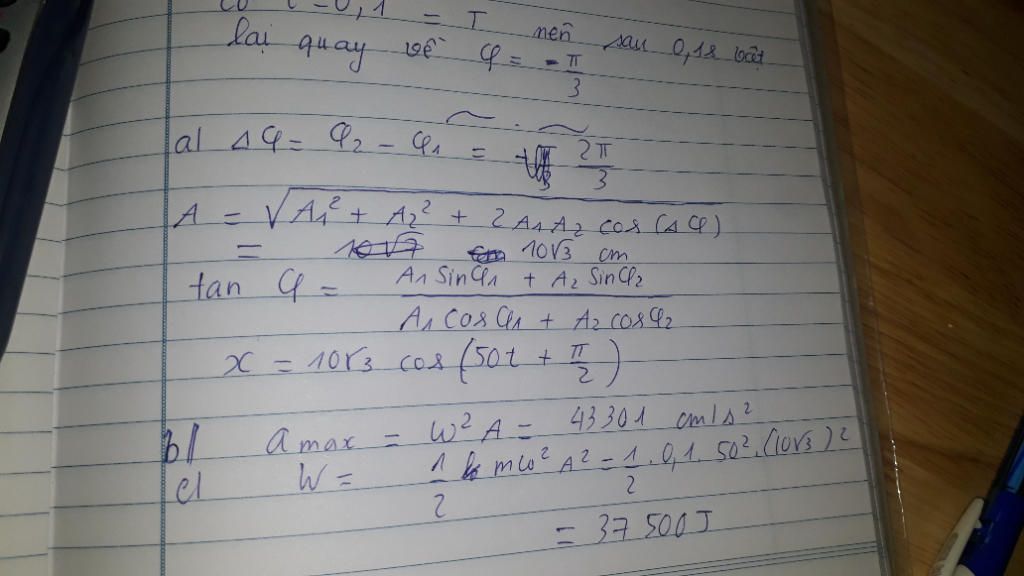 có t = 0,1 = T nên sau 0,1s vật
lại quay về φ = -π/3
a) Δφ = φ2 - φ1 = 2π/3
A = √(A1² + A2² + 2A1A2 cos(Δφ))
= 10√3 cm
tan φ = (A1 sinφ1 + A2 sinφ2)/(A1 cosφ1 + A2 cosφ2)
x = 10√3 cos(50t + π/2)
b) amax = ω²A = 43301 cm/s²
c) W = 1/2 mω²A² = 1/2 . 0,1 . 50² . (10√3)²
= 37500J